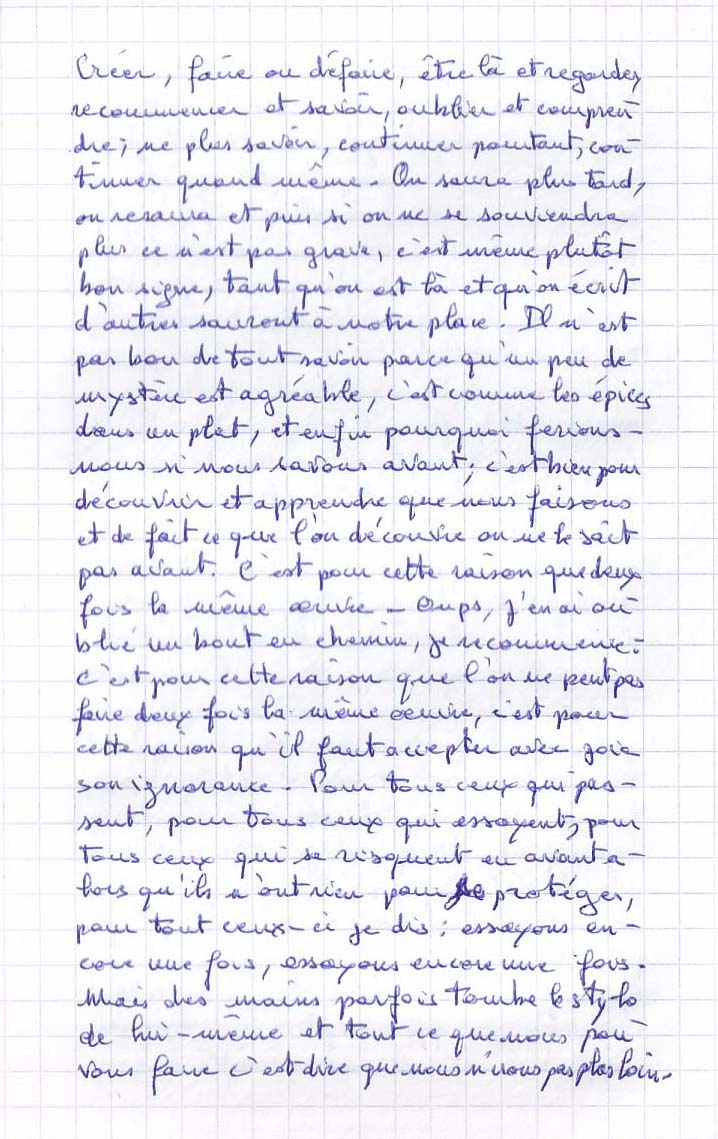 Créer, faire ou défaire, être là et regarder,
recommencer et savoir, oublier et compren-
dre; ne plus savoir, continuer pourtant, con-
tinuer quand même. On saura plus tard,
on resaura et puis si on ne se souviendra
plus ce n'est pas grave, c'est même plutôt
bon signe, tant qu'on est là et qu'on écrit
d'autres sauront à notre place. Il n'est
pas bon de tout savoir parce qu'un peu de
mystère est agréable, c'est comme les épices
dans un plat, et enfin pourquoi ferions-
nous si nous savons avant; c'est bien pour
découvrir et apprendre que nous faisons
et de fait ce que l'on découvre on ne le sait
pas avant. C'est pour cette raison que deux
fois la même œuvre - Oups, j'en ai ou-
blié un bout en chemin, je recommence:
c'est pour cette raison que l'on ne peut pas
faire deux fois la même œuvre, c'est pour
cette raison qu'il faut accepter avec joie
son ignorance. Pour tous ceux qui pas-
sent, pour tous ceux qui essayent, pour
tous ceux qui se risquent en avant a-
lors qu'ils n'ont rien pour se protéger,
pour tout ceux-ci je dis: essayons en-
core une fois, essayons encore une fois.
Mais des mains parfois tombe le stylo
de lui-même et tout ce que nous pou-
vons faire c'est dire que nous n'irons pas plus loin.